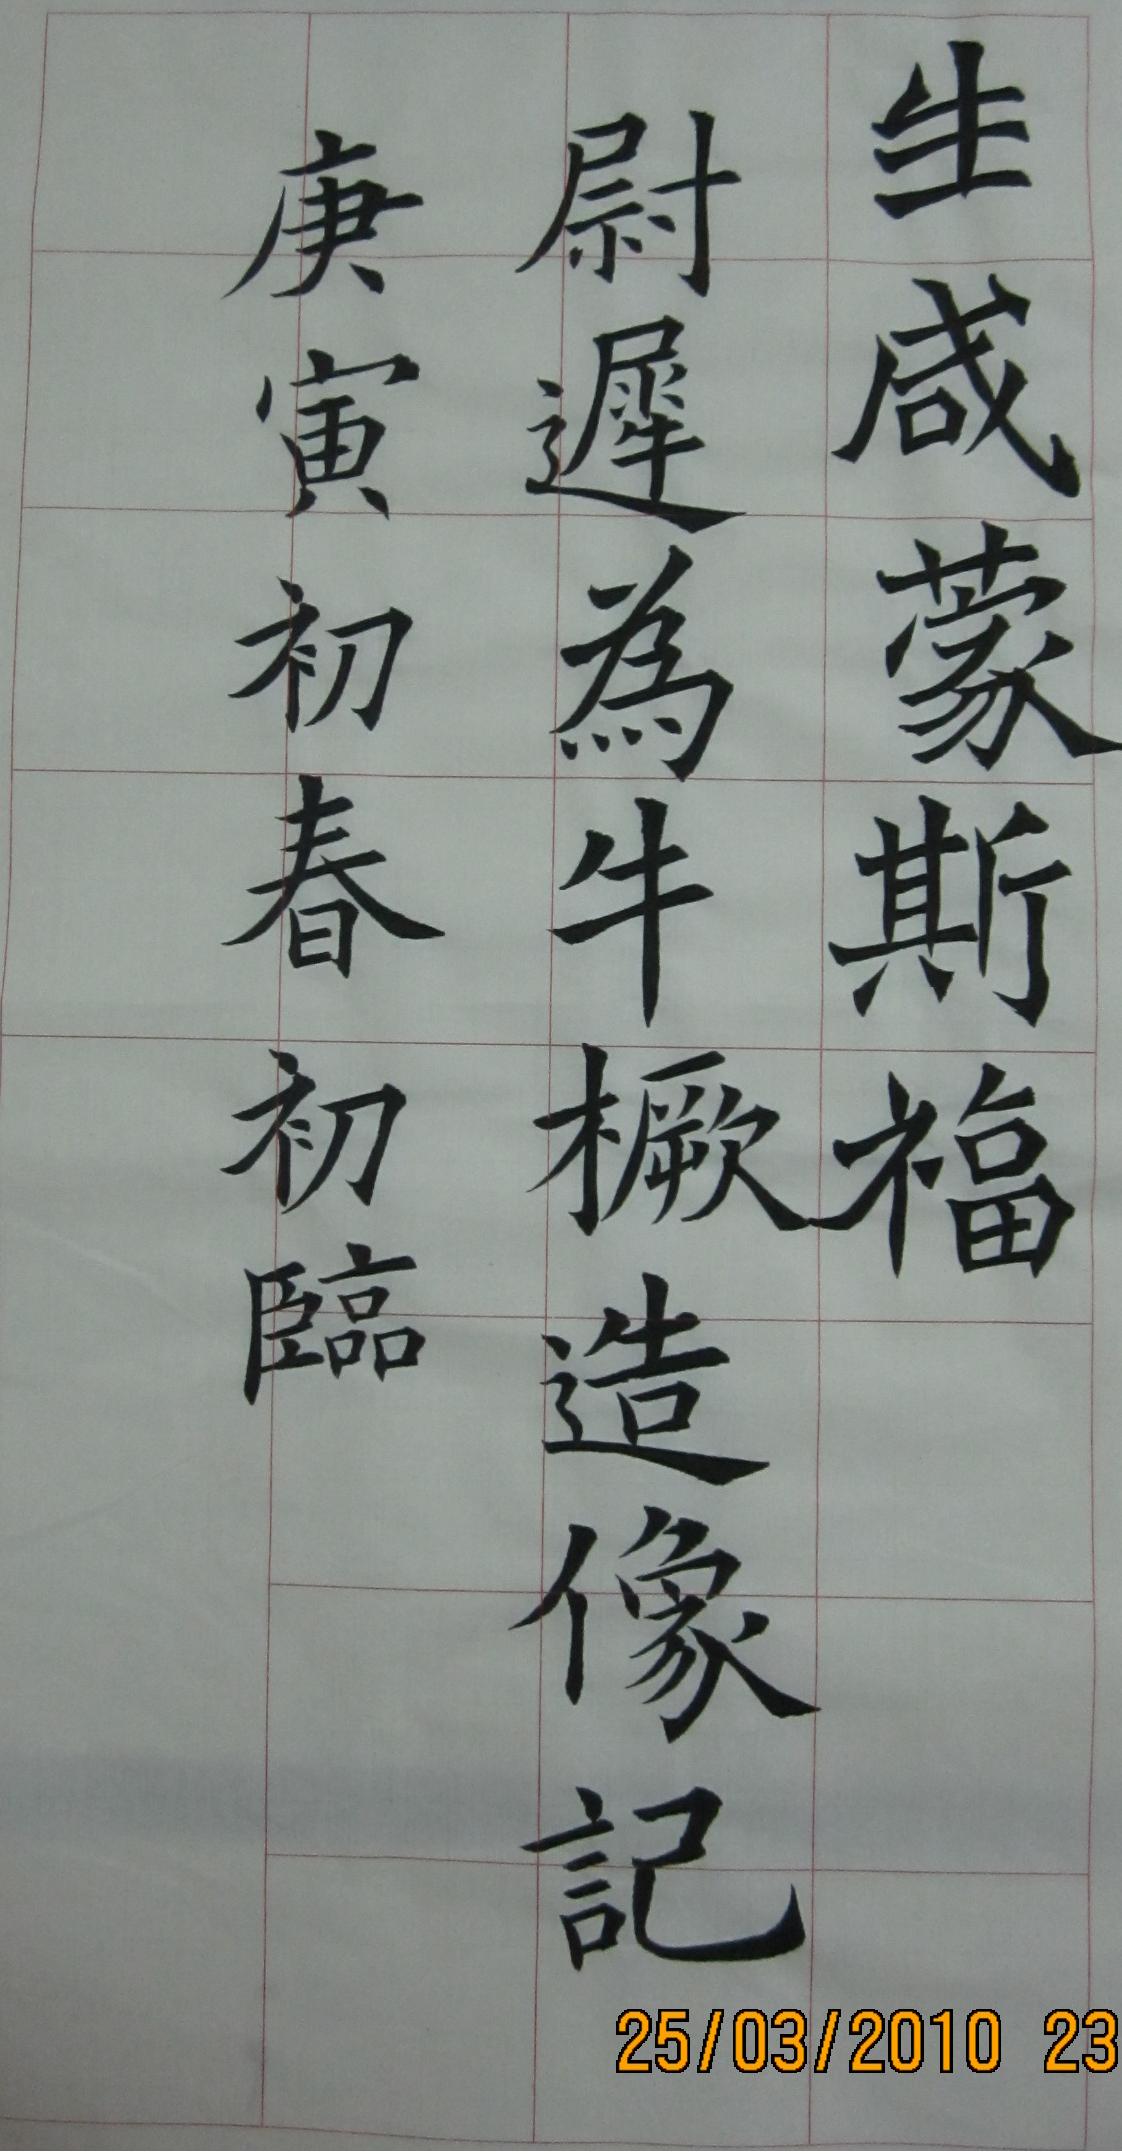 生咸蒙斯福
尉遲為牛橛造像記
庚寅初春初臨
25/03/2010 23